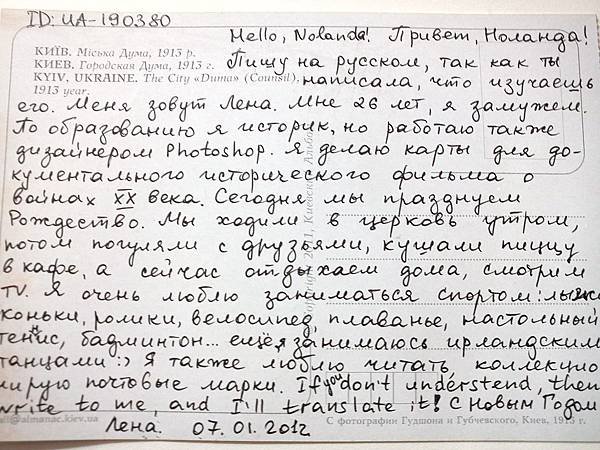 ID: UA-190380
Hello, Nolanda! Привет, Ноланда!
КИЇВ. Міська Дума, 1913 р.
КИЕВ. Городская Дума, 1913 г.
KYIV, UKRAINE. The City «Duma» (Counsil),
1913 year.
Пишу на русском, так как ты
написала, что изучаешь
его. Меня зовут Лена. Мне 26 лет, я замужем.
По образованию я историк, но работаю также
дизайнером Photoshop. Я делаю карты для до-
кументального исторического фильма о
войнах XX века. Сегодня мы празднуем
Рождество. Мы ходили в церковь утром,
потом погуляли с друзьями, кушали пиццу
в кафе, а сейчас отдыхаем дома, смотрим
TV. Я очень люблю заниматься спортом: лыжи
коньки, ролики, велосипед, плаванье, настольный
теннис, бадминтон... ещё я занимаюсь ирландским
танцами :) Я также люблю читать, коллекцио
нирую почтовые марки. If you don't understend, then
write to me, and I'll translate it! С Новым Годом
almanac.kiev.ua
С фотографии Гудшона и Губчевского, Киев, 1913 г.
Лена. 07.01.2012